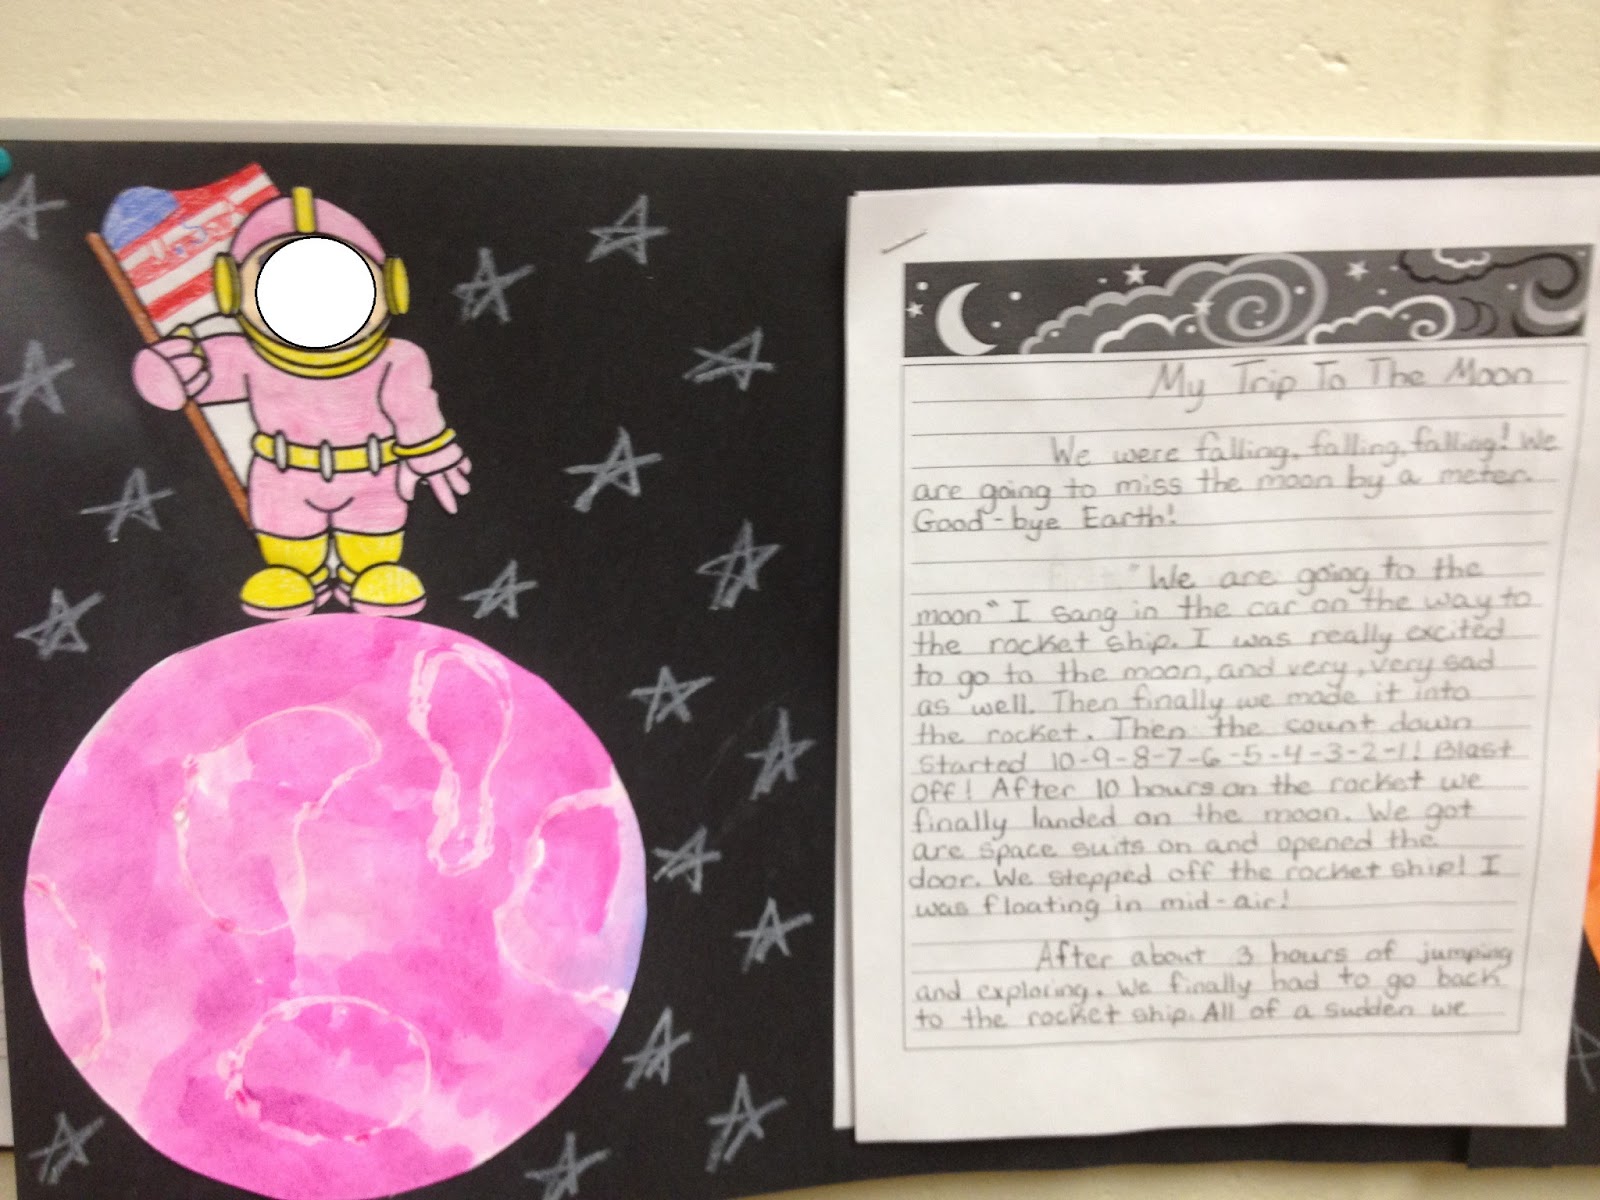 USA
My Trip To The Moon
We were falling, falling, falling! We
are going to miss the moon by a meter.
Good-bye Earth!
"We are going to the
moon" I sang in the car on the way to
the rocket ship. I was really excited
to go to the moon, and very, very sad
as well. Then finally we made it into
the rocket. Then the count down
started 10-9-8-7-6-5-4-3-2-1! Blast
off! After 10 hours on the rocket we
finally landed on the moon. We got
are space suits on and opened the
door. We stepped off the rocket ship! I
was floating in mid-air!
After about 3 hours of jumping
and exploring. We finally had to go back
to the rocket ship. All of a sudden we